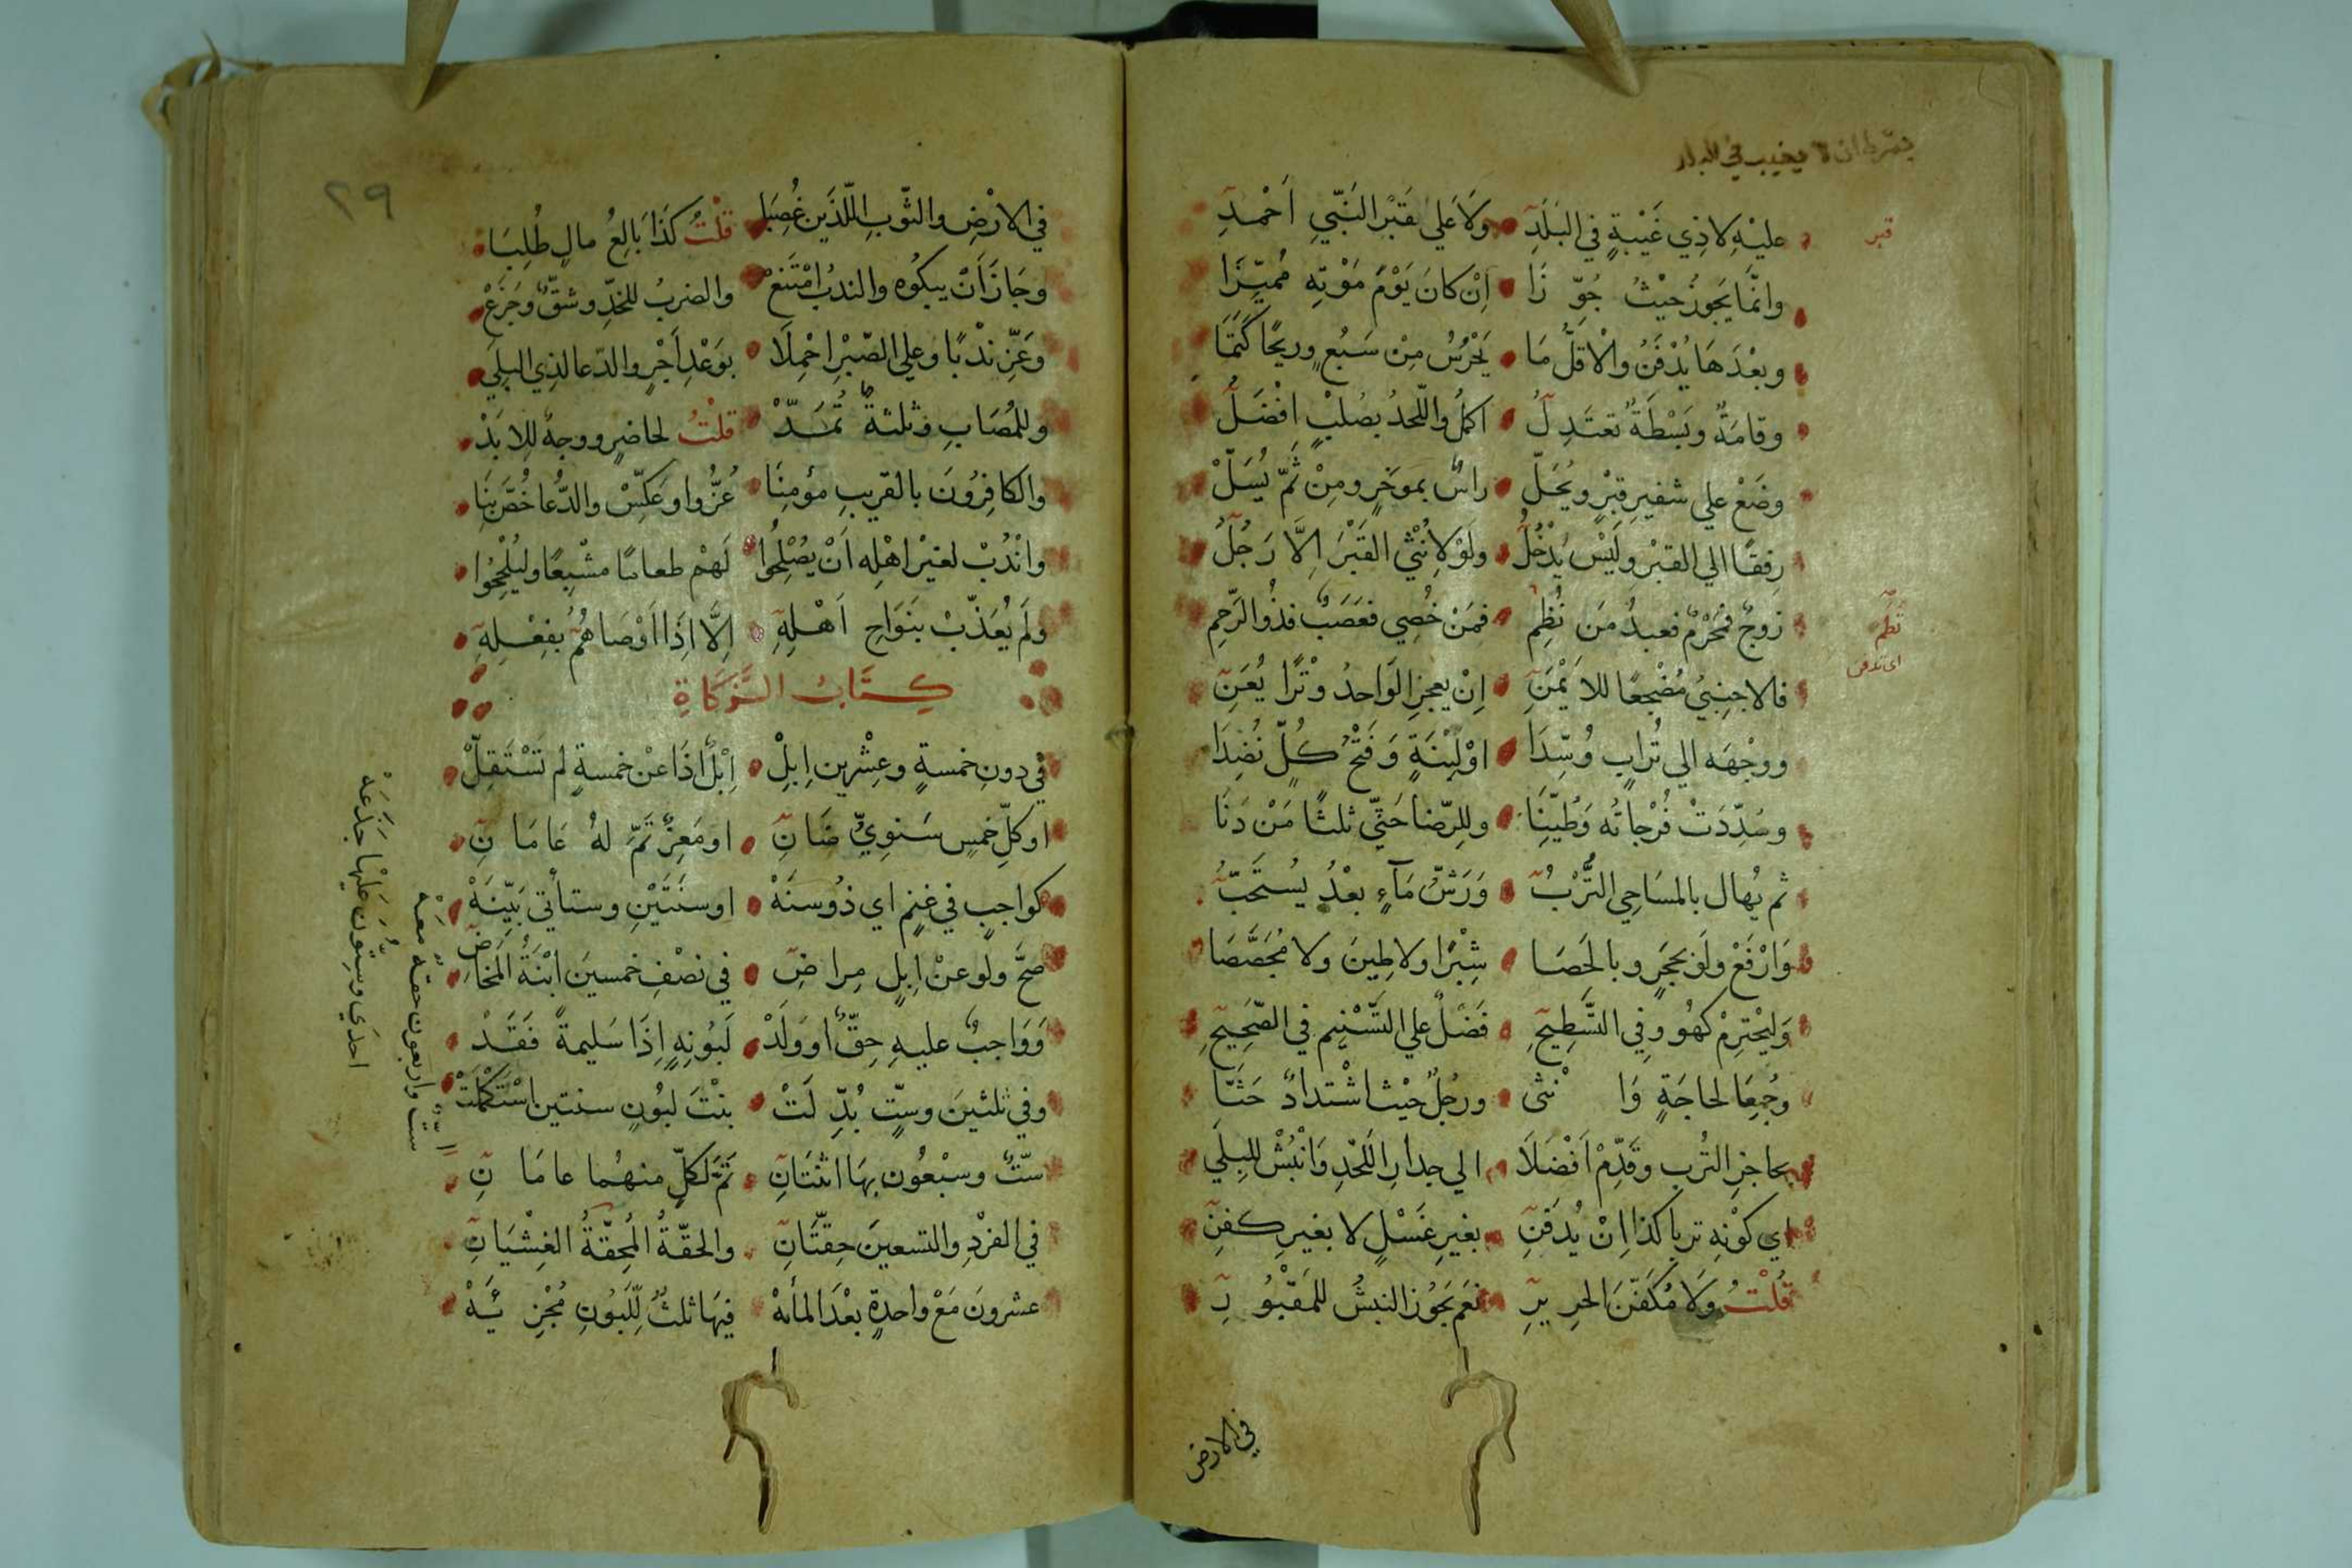 بشرط ان لا يغيب في البلد
عليْهِ لا ذِي غَيْبةٍ في البَلَدِ وَلَا علي قَبْرِ النَبّيِ اَحْمدِ
قبر
وانّمَا يَجوزُ حيْثُ جُوّزَا اِنْ كانَ يَوْمَ مَوْتِهِ مُميّزَا
وبعْدَهَا يُدْفَنُ والْاقلُّ مَا يَحْرُسُ مِنْ سَبُعٍ وريحًا كَتَمَا
وقامَةٌ وبَسْطَةٌ تعتَدِلُ اكملُ واللّحدُ بصُلبٍ افْضَلُ
وضَعْ علي شفيرِ قبْرٍ ويُحَلّ راسٌ بموخَرٍ ومِنْ ثَمَّ يُسَلّ
رِفقًا الي القبْرِ ولَيْسَ يُدْخُلُ ولَوْ لِانُثْي القَبْرَ اِلَّا رَجُلُ
زوجٌ فمَحْرَمٌ فعبدُ مَن نُظِمْ فمَنْ خُصِي فعَصَبٌ فذُوالرَّحِمِ
نُظِم
اي تدفن
فالاجنِبيُّ مُضْجعًا للاَيْمَنِ اِنْ يعجزِ الوَاحدُ وِتْرًا يُعَنِ
ووجْهَه الي تُرابٍ وُسِّدَا اوْ لَبِنَةٍ وَفَتْحُ كُلٍّ نُضِدَا
وسُدِّدَتْ فُرْجاتُه وَطُيّنَا وللِرّضا حَثّي ثلثًا مَنْ دَنَا
ثم يُهال بالمسَاحِي التُّرْبُ وَرَشُّ مَآءٍ بعْدُ يُستَحَبُّ
وَارْفَعْ ولَوْ بحجَرٍ وبالحَصَا شِبْرًا ولا طِينَ ولا مُجَصَّصَا
وَليُحْترِمْ كهُو وفِي التَّسْطِيحِ فَضْلٌ علي التَّسْنِيمِ في الصّحِيحِ
وجُمِعَا لحاجَةٍ وَانْثي ورجُلٌ حيْث اشْتدادٌ حَثّا
بحاجزِ التُربِ وقَدِّمْ اَفْضَلَا الي جدارِ اللَحْدِ وَانْبُشْ للبِلَي
اي كوْنِهِ تربا كذا اِنْ يُدفَنِ بغيرِ غَسْلٍ لا بغيرِ كفنِ
قُلْتُ ولَا مُكَفّنَ الحريرِ نعَم يَجُوز النبشُ للمَقْبُورِ
في الارض
٢٩
في الارْضِ والثّوبِ اللّذَين غُصِبَا قلْتُ كَذَا بَالِعُ مالٍ طُلِبَا
وجَازَ اَنْ يبكُوه والندبُ امْتَنَعْ والضربُ للخدِّ وشقٌّ وجَزَعْ
وعَزِّ ندْبًا وعلي الصّبْرِ احْمِلَا بوَعْدِ اَجْرٍ والدّعا لذِي البلِي
وللمُصَابِ وثلثةً تُمَدّْ قلْتُ لحاضرٍ ووجهٌ للابَدْ
والكافِرُونَ بالقريبِ مؤمِنَا عُزُّوا وعَكِسْ والدُّعا خُصَّ بنَا
وانْدُبْ لغيْرِ اهْلِه اَنْ يُصْلِحُوا لَهمْ طعامًا مشْبِعًا وليُلْحِحُوا
ولَم يُعَذّبْ بنَوَاحِ اَهْلِهِ اِلَّا اِذَا اَوْصَاهُمُ بفِعْلِهِ
كِتَابُ الزَّكَاةِ
في دونِ خمسةٍ وعِشْرينَ اِبِلْ اِبْلٌ اذَا عنْ خمسةٍ لم تَسْتَقِلّْ
او كلِّ خمسٍ سَنوِيُّ ضَانِ او مَعِزٌ تَمَّ لهُ عَامَانِ
كواجبٍ في غنمٍ اي ذُو سنَهْ او سنَتَيْنِ وستأتي بَيِّنَهْ
صحَّ ولو عنْ اِبلٍ مِراضِ في نصْفِ خمسينَ ابْنَةُ المَخاضِ
وَوَاجبٌ عليهِ حِقٌّ او وَلَدْ لَبُونِهِ اِذَا سَليمةً فَقَدْ
وفي ثلثينَ وستٍّ بُدِّلَتْ بنْتَ لبُونٍ سنتين اسْتَكْمَلَتْ
ستٌّ واربعون حقةٌ معَهْ
احدَي وسِتُّون عَليْها جَذَعَهْ
ستٌّ وسبْعُون بهَا اثنَتَانِ تَمَّ لكلٍّ منهُما عامَانِ
في الفرْدِ والتسعين حِقّتَانِ والحقّةُ المُحِقّةُ الغِشْيَانِ
عشرونَ مَعْ واحدةٍ بعْدَ المأهْ فيهَا ثلثٌ للّبَوُنِ مُجْزِئَهْ